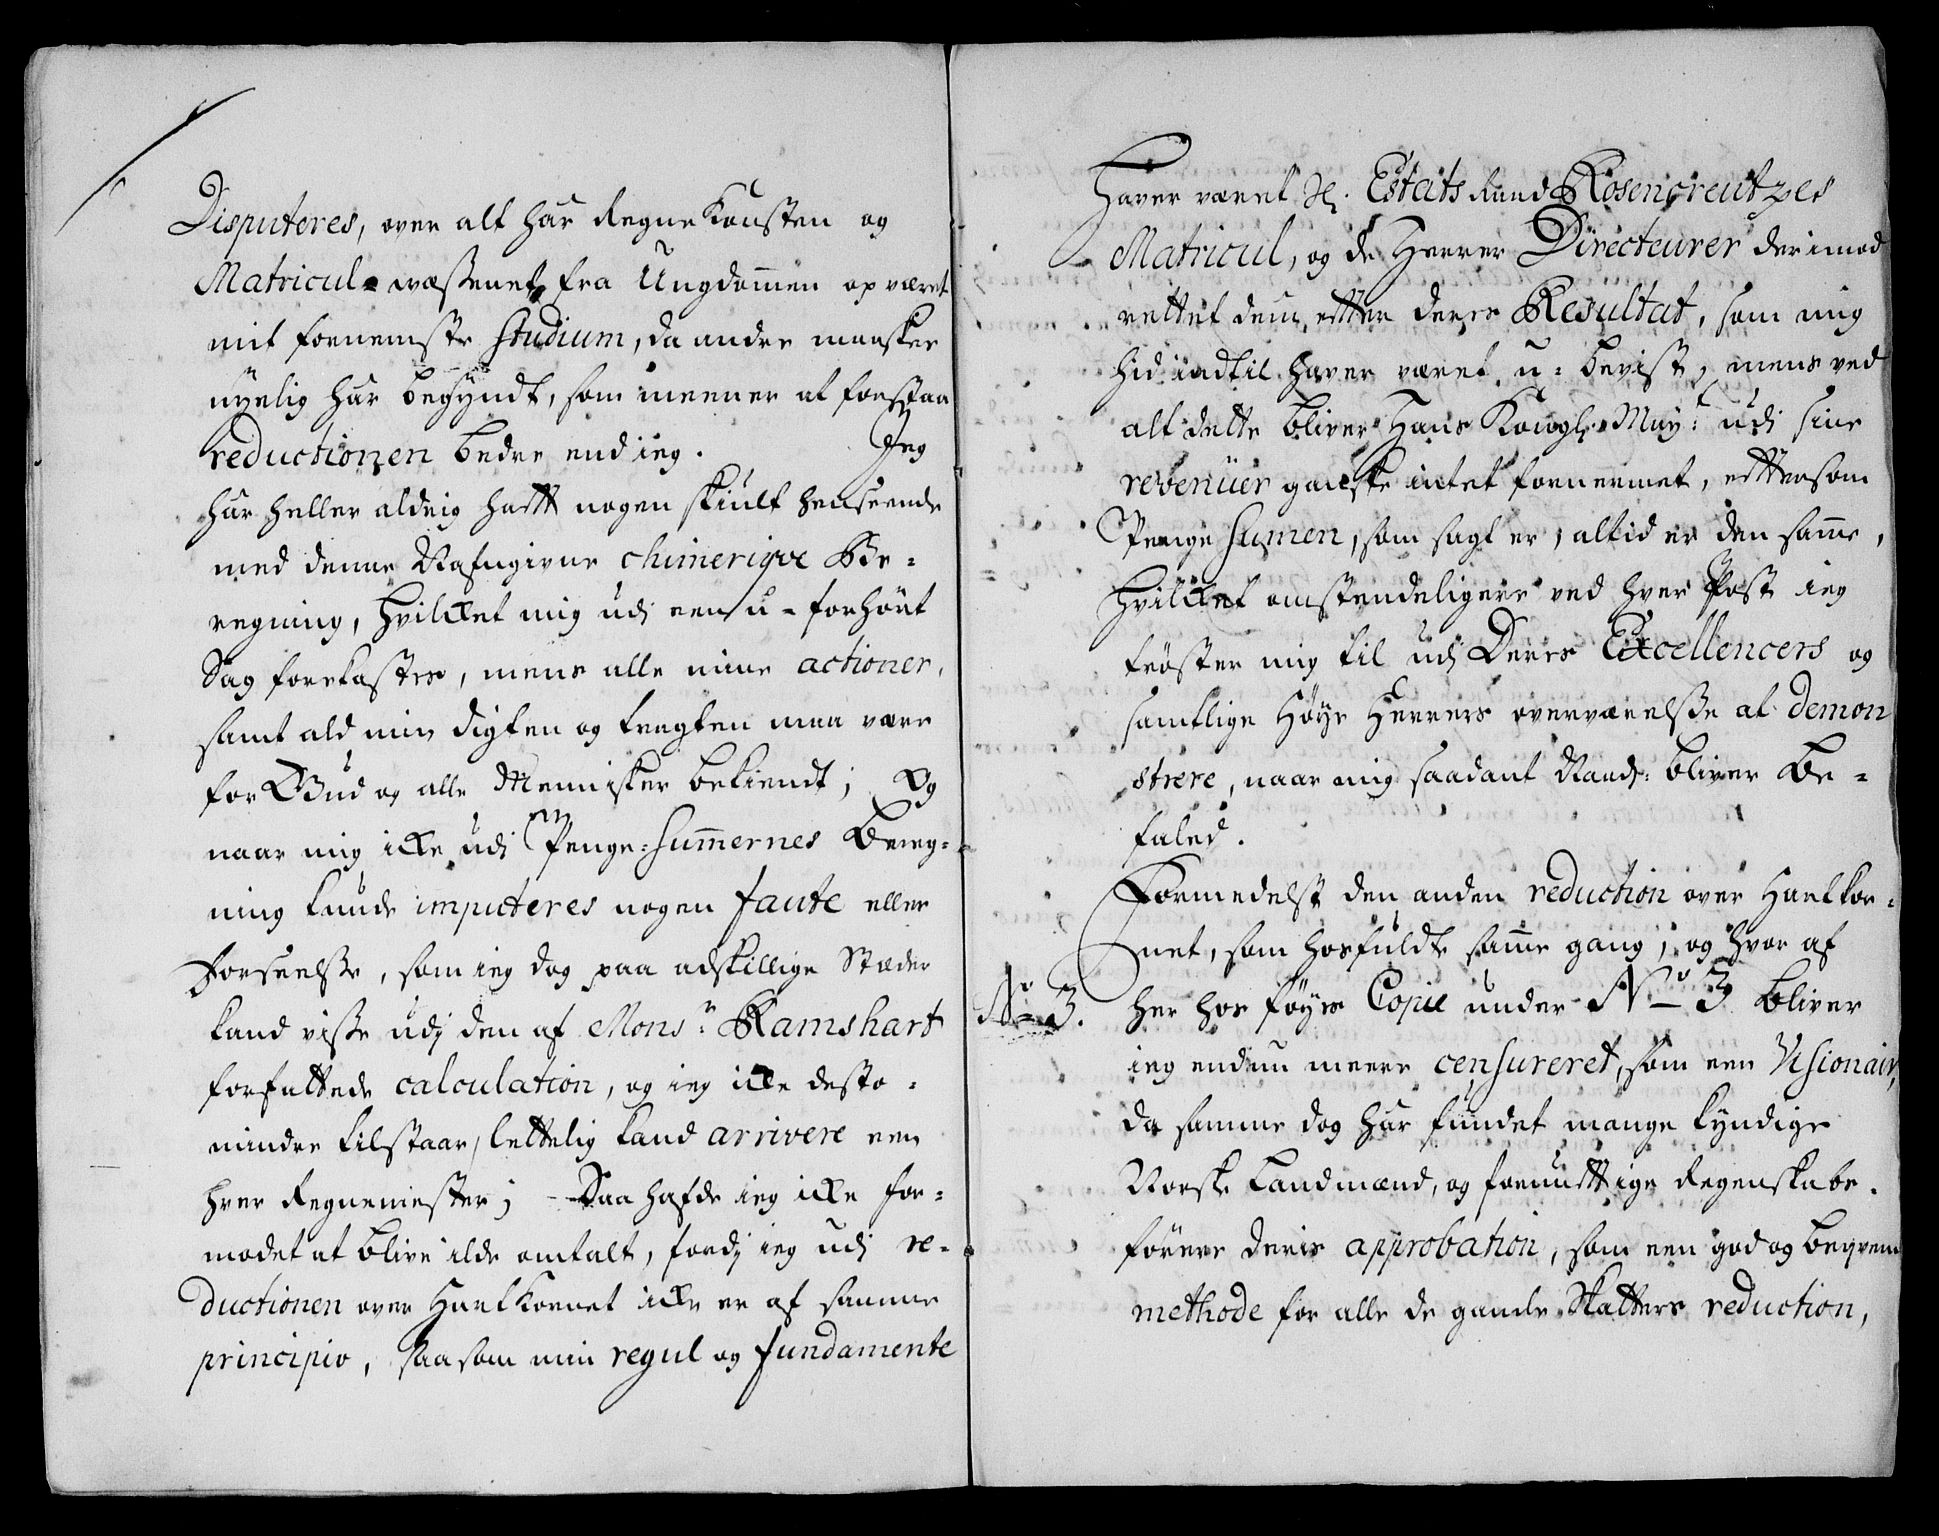 Disputeres, over alt har Regne Konsten og
Matricul-wæssenet fra Ungdommen op været
mit fornemste studium, da andre maaskee
nyelig har begyndt, som meener at forstaa
reductionen bedre end ieg. Jeg
har heller aldrig hafft nogen skiult henseende
med denne Nafngivne chimeriqve Be-
regning, hvilket mig udj een u-forhört
Sag forekastes, mens alle mine actioner,
samt ald min digten og tragten maa være
for Gud og alle Mennisker bekiendt; Og
naar mig icke udj Penge-Summernes Bereg-
ning kunde imputeres nogen faute eller
Forseelsse, som ieg dog paa adskillige Stæder
kand visse udj den af Monsr: Ramshart
forfattede calculation, og ieg icke desto-
mindre tilstaar, lettelig kand arrivere een
hver Regnemester; Saa hafde ieg icke for-
modet at blive ilde omtalt, fordj ieg udj re-
ductionen over Hartkornet icke er af samme
principio, saasom min regul og fundamente
Haver været Sl. Estats Raad Rosencreutzes
Matricul, og de Herrer Directeurer derimod
rettet dem efftter deres Resultat, som mig
hid indtil haver været u-bevist, mens ved
alt dette bliver Hans Kongl. May: udj sine
revenüer gandske intet fornermet, effttersom
Penge Sumen, som sagt er, altid er den samme,
Hvilcket omstendeligere ved hver Post ieg
tröster mig til udj Deres Excellencers og
samtlige Höye Herrers overværelsse at demon
strere, naar mig saadant Naad: bliver Be-
faled.
Formedelst den anden reduction over Hartkor-
net, som hosfuldte samme gang, og hvor af
No 3. her hos föyes Copie under No 3 bliver
ieg endnu meere censureret, som een Visionair,
da samme dog har fundet mange kyndige
Norske Landmænd, og fornufftige Regenskabs-
förere deris approbation, som een god og beqvem
methode for alle de gamle Skatters reduction,